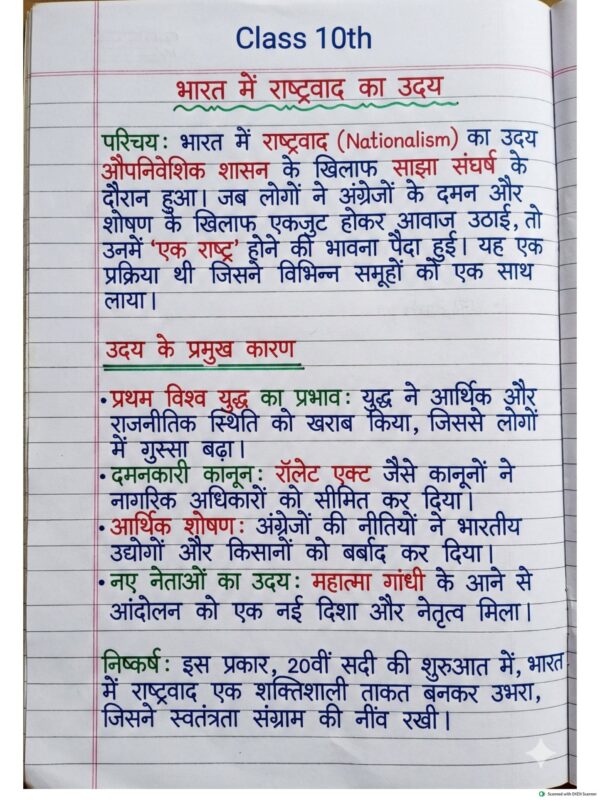 Class 10th
भारत में राष्ट्रवाद का उदय
परिचय: भारत में राष्ट्रवाद (Nationalism) का उदय
औपनिवेशिक शासन के खिलाफ साझा संघर्ष के
दौरान हुआ। जब लोगों ने अंग्रेजों के दमन और
शोषण के खिलाफ एकजुट होकर आवाज उठाई, तो
उनमें ‘एक राष्ट्र’ होने की भावना पैदा हुई। यह एक
प्रक्रिया थी जिसने विभिन्न समूहों को एक साथ
लाया।
उदय के प्रमुख कारण
• प्रथम विश्व युद्ध का प्रभाव: युद्ध ने आर्थिक और
राजनीतिक स्थिति को खराब किया, जिससे लोगों
में गुस्सा बढ़ा।
• दमनकारी कानून: रॉलेट एक्ट जैसे कानूनों ने
नागरिक अधिकारों को सीमित कर दिया।
• आर्थिक शोषण: अंग्रेजों की नीतियों ने भारतीय
उद्योगों और किसानों को बर्बाद कर दिया।
• नए नेताओं का उदय: महात्मा गांधी के आने से
आंदोलन को एक नई दिशा और नेतृत्व मिला।
निष्कर्ष: इस प्रकार, 20वीं सदी की शुरुआत में, भारत
में राष्ट्रवाद एक शक्तिशाली ताकत बनकर उभरा,
जिसने स्वतंत्रता संग्राम की नींव रखी।
Scanned with OKEN Scanner